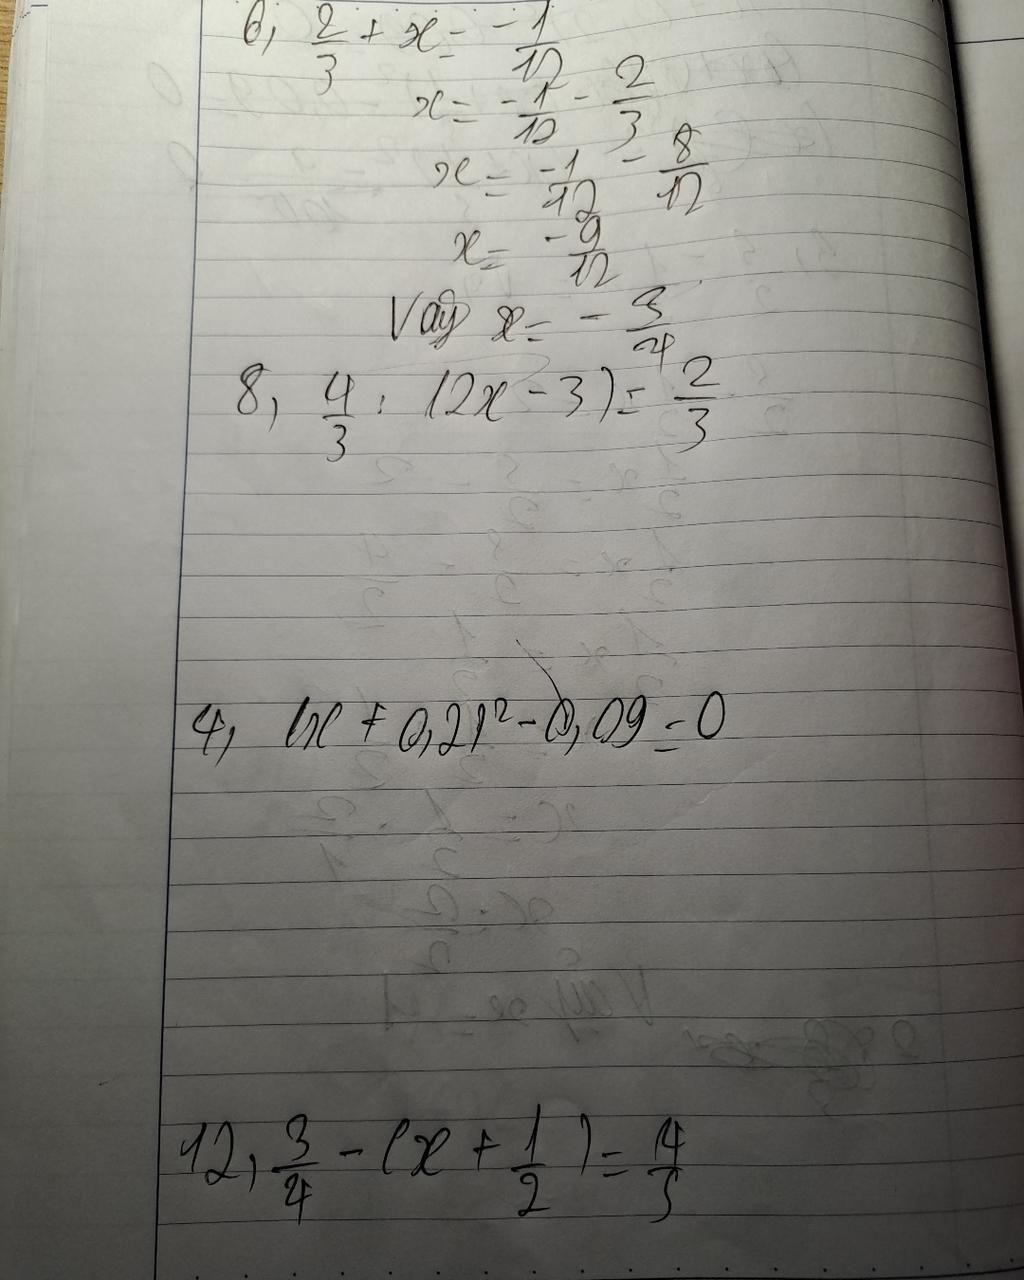 6, 2/3 + x = -1/12
x = -1/12 - 2/3
x = -1/12 - 8/12
x = -9/12
Vậy x = -3/4
8, 4/3 : (2x - 3) = 2/3
4, (x + 0,2)² - 0,09 = 0
12, 3/4 - (x + 1/2) = 4/5